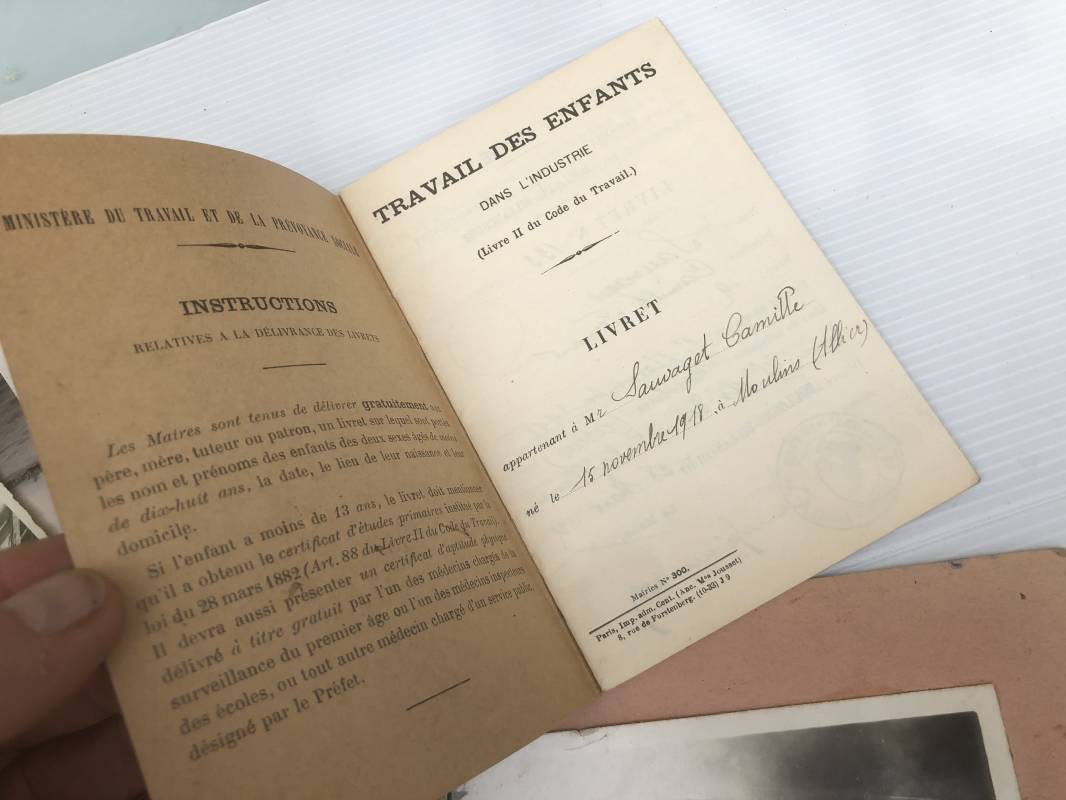 MINISTÈRE DU TRAVAIL ET DE LA PRÉVOYANCE SOCIALE
INSTRUCTIONS
RELATIVES A LA DÉLIVRANCE DES LIVRETS
Les Maires sont tenus de délivrer gratuitement aux
père, mère, tuteur ou patron, un livret sur lequel sont portés
les nom et prénoms des enfants des deux sexes âgés de moins
de dix-huit ans, la date, le lieu de leur naissance et leur
domicile.
Si l'enfant a moins de 13 ans, le livret doit mentionner
qu'il a obtenu le certificat d'études primaires institué par la
loi du 28 mars 1882 (Art. 88 du Livre II du Code du Travail).
Il devra aussi présenter un certificat d'aptitude physique
délivré à titre gratuit par l'un des médecins chargés de la
surveillance du premier âge ou l'un des médecins inspecteurs
des écoles, ou tout autre médecin chargé d'un service public,
désigné par le Préfet.
TRAVAIL DES ENFANTS
DANS L'INDUSTRIE
(Livre II du Code du Travail.)
LIVRET
appartenant à Mr Sauvaget Camille
né le 15 novembre 1918 à Moulins (Allier)
Mairies N° 300.
Paris, Imp. adm. Cent. (Anc. Mon Jousset)
8, rue de Furstenberg. (10-32) J 9